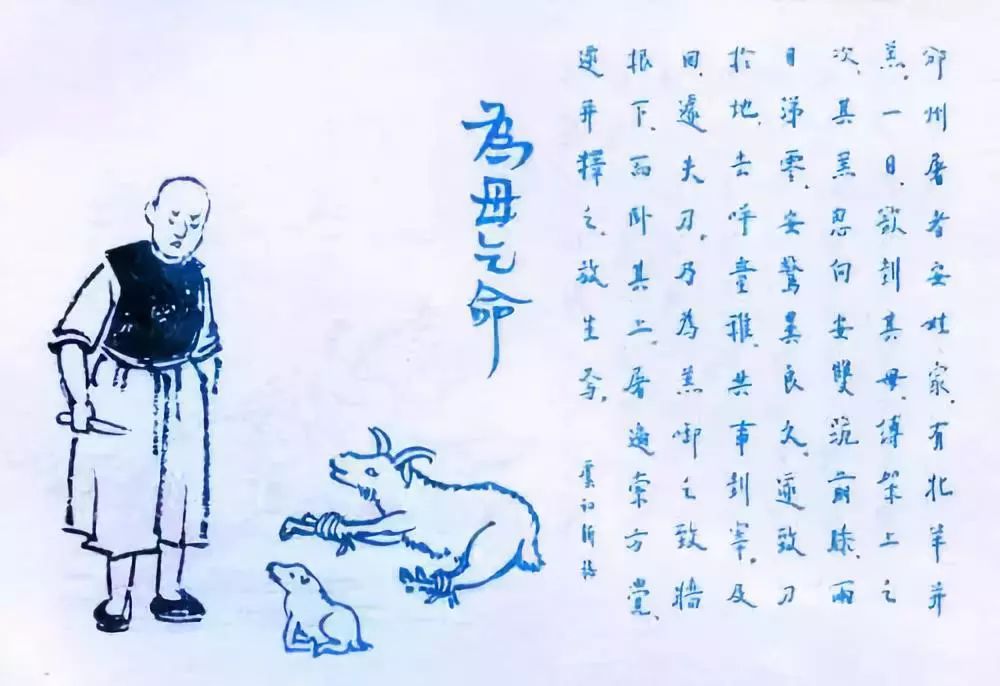 邠州屠者安姓家。有牝羊并
羔。一日。欲刲其母。縛架上之
次。其羔忽向安雙跪前膝。兩
目涕零。安驚異良久。遂致刀
於地。去呼童稚。共事刲宰。及
回。遽失刀。乃為羔啣之致牆
根下。而卧其上。屠遍索方覺。
遂并釋之。放生焉。
為母乞命